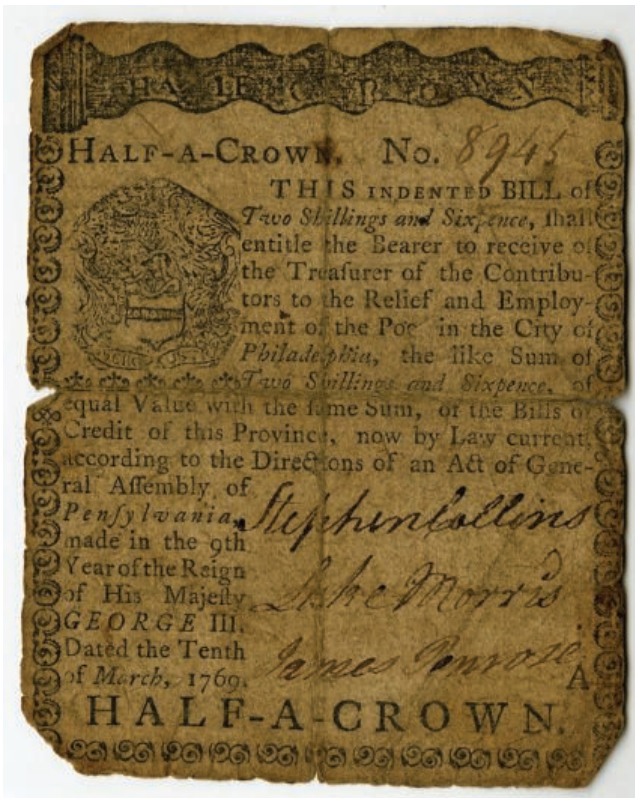 HALF A CROWN
HALF-A-CROWN. No. 8945
THIS INDENTED BILL of
Two Shillings and Sixpence, ſhall
entitle the Bearer to receive of
the Treaſurer of the Contribu-
tors to the Relief and Employ-
ment of the Poor in the City of
Philadelphia, the like Sum of
Two Shillings and Sixpence, of
equal Value with the ſame Sum, of the Bills of
Credit of this Province, now by Law current,
according to the Directions of an Act of Gene-
ral Aſſembly of
Penſylvania,
made in the 9th
Year of the Reign
of His Majeſty
GEORGE III.
Dated the Tenth
of March, 1769.
Stephen Collins
Luke Morris
James Penrose
A
HALF-A-CROWN.